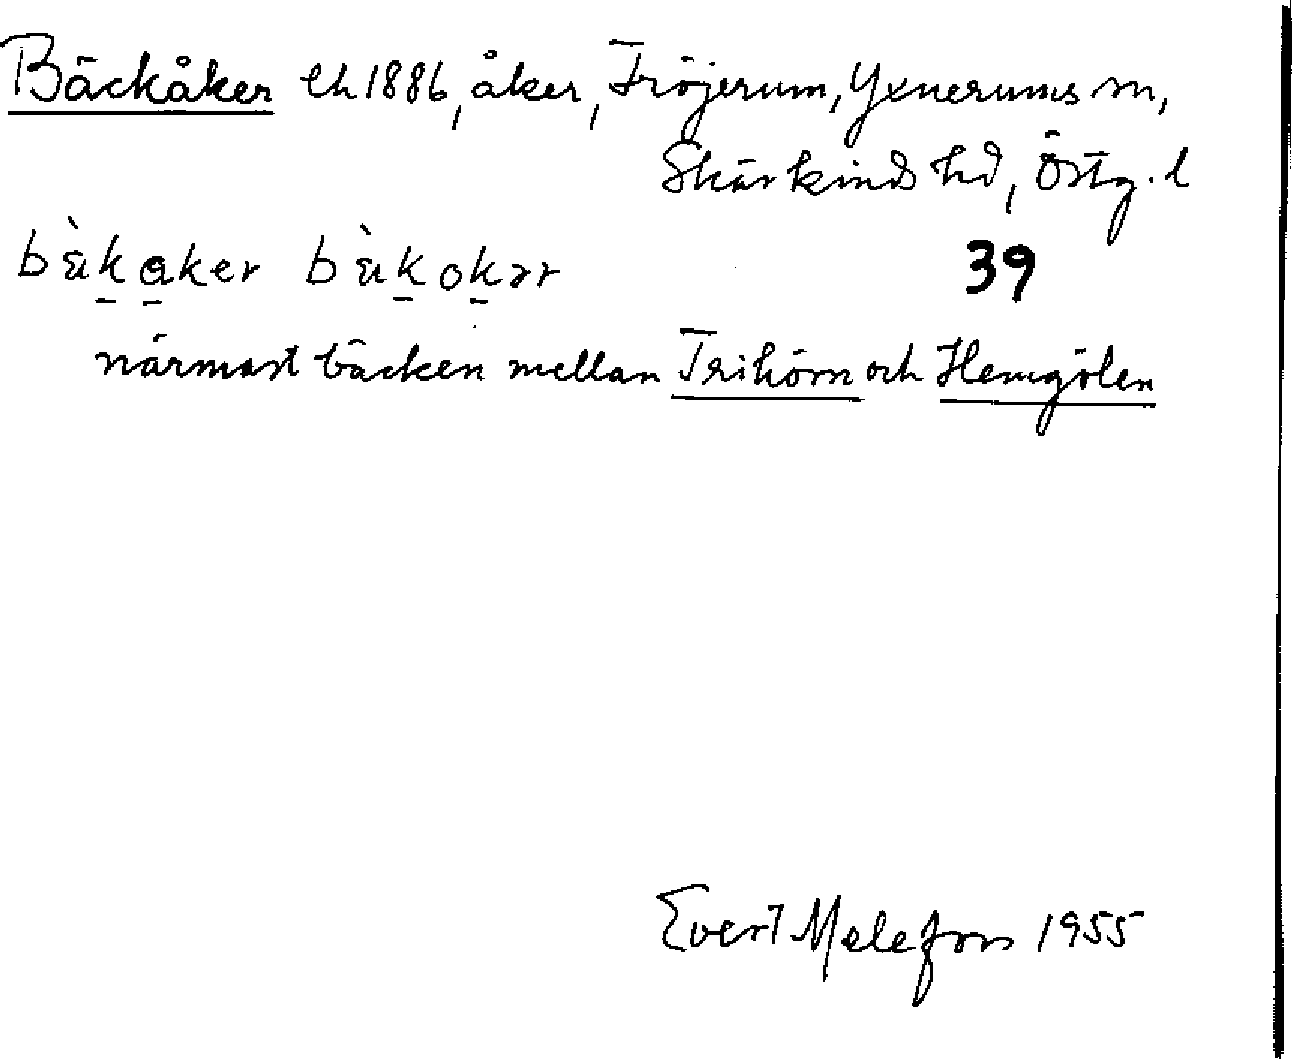 Bäckåker lh 1886, åker, Fröjerum, Yxnerums sn,
Skärkinds hd, Östg. l
bὰkaker bὰkokər 39
närmast bäcken mellan Trihörn och Hemgölen
Evert Melefors 1955